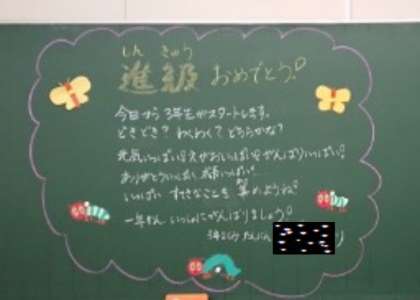 しん きゅう
進級 おめでとう!
今日から 3年生がスタートします。
どきどき? わくわく? どちらかな?
元気いっぱい! えがおいっぱい! がんばりいっぱい!
ありがとういっぱい、成長いっぱい
いっぱい すてきなことを 集めようね
一年間 いっしょにがんばりましょう!
3年2くみ たんにん
より